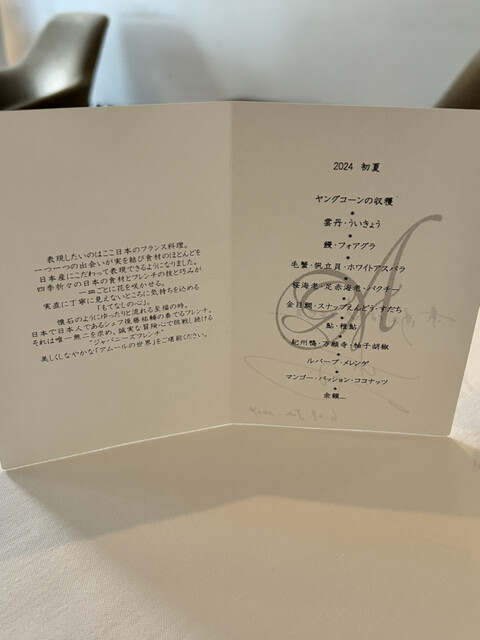 表現したいのはここ日本のフランス料理。
一つ一つの出会いが実を結び食材のほとんどを
日本産にこだわって表現できるようになりました。
四季折々の日本の食材とフレンチの技と巧みが
一皿ごとに花を咲かせる。
実直に丁寧に見えないところに気持ちを込める
「もてなしの心」。
懐石のようにゆったりと流れる至福の時。
日本で日本人であるシェフ後藤祐輔の奏でるフレンチ。
それは唯一無二を求め、誠実な冒険心で挑戦し続ける
"ジャパニーズフレンチ"
美しくしなやかな「アムールの世界」をご堪能ください。
2024 初夏
ヤングコーンの収穫
雲丹・ういきょう
鰻・フォアグラ
毛蟹・帆立貝・ホワイトアスパラ
桜海老・足赤海老・パクチー
金目鯛・スナップえんどう・すだち
鮎・稚鮎
紀州鴨・万願寺・柚子胡椒
ルバーブ・メレンゲ
マンゴー・パッション・ココナッツ
余韻
A